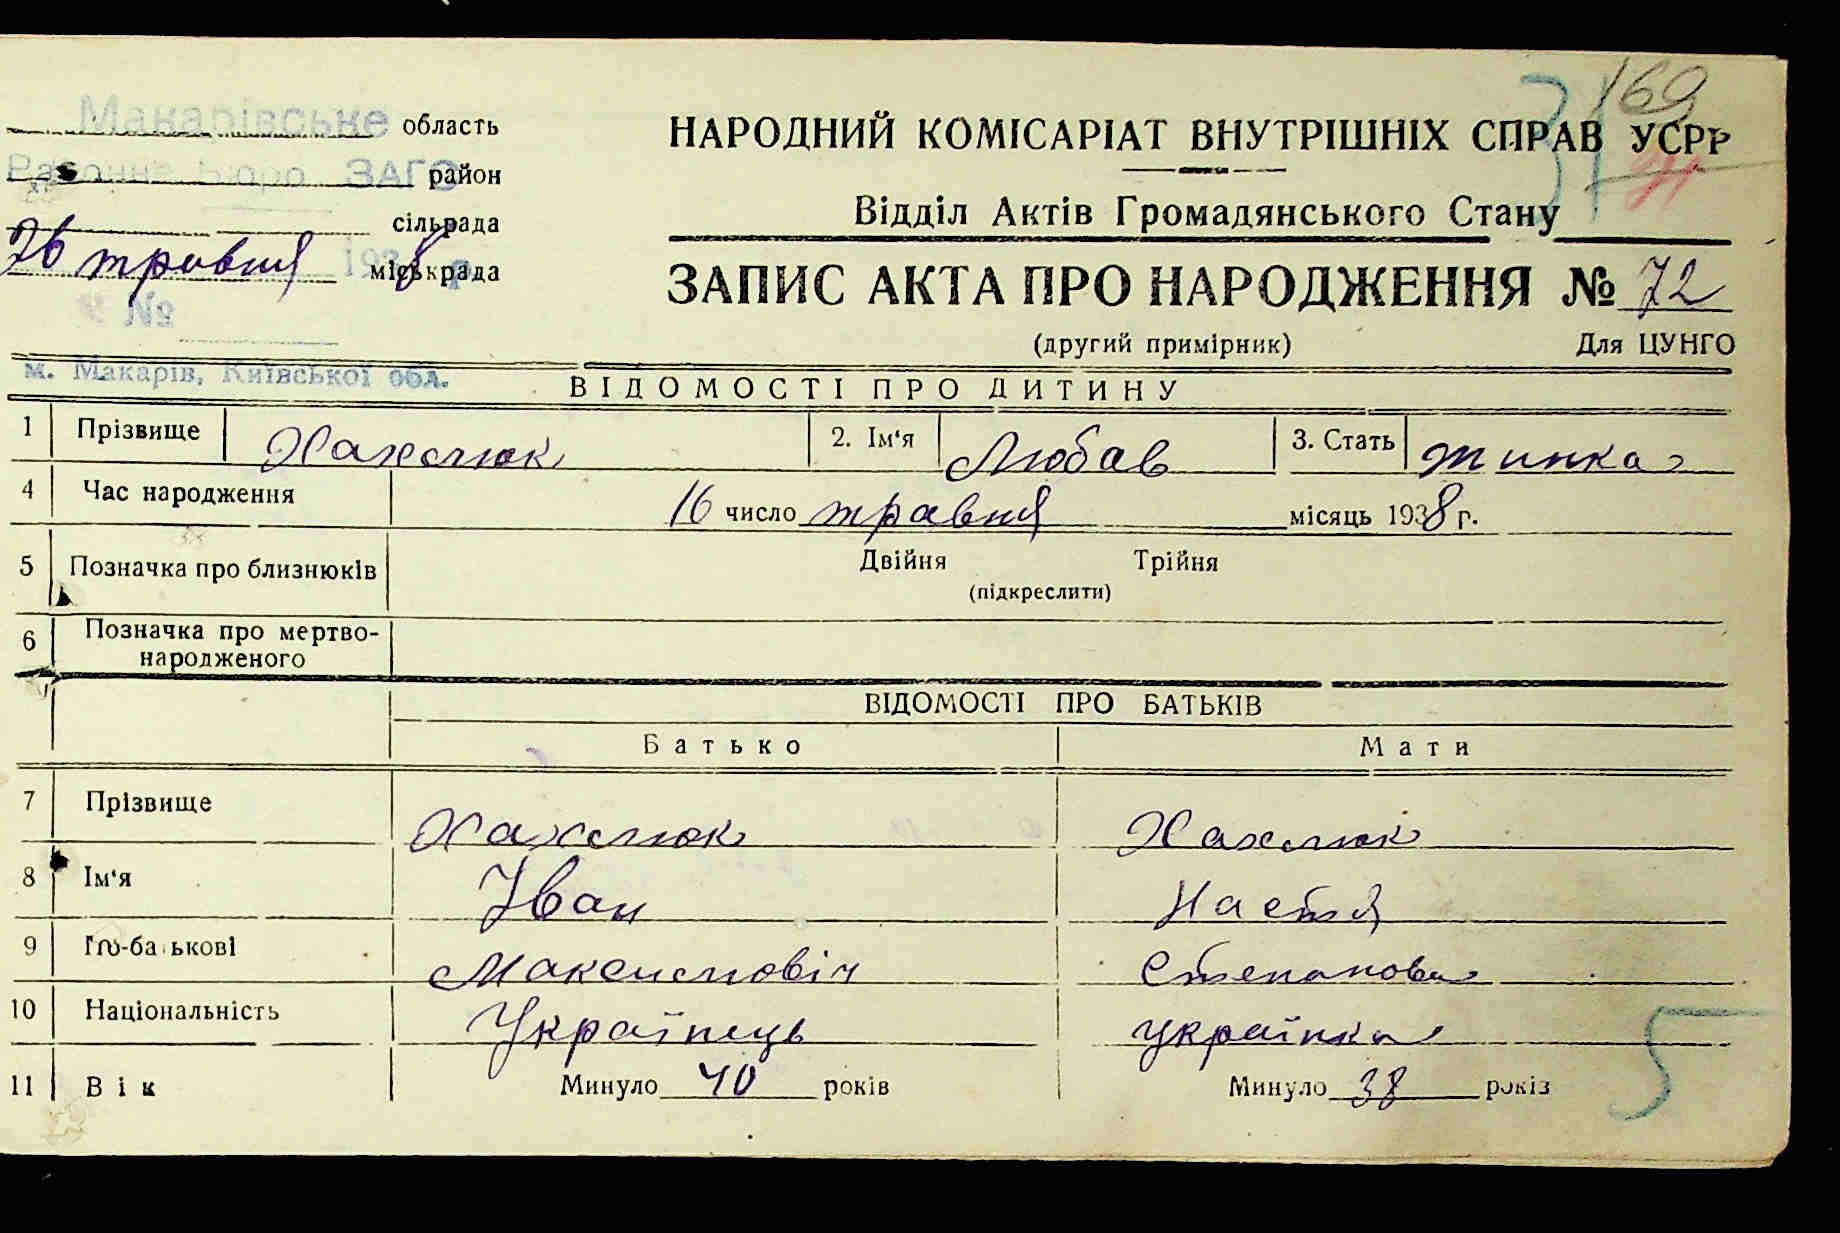 Макарівське область
Районне Бюро ЗАГС район
сільрада
26 травня 1938 р. міськрада
№
м. Макарів, Київської обл.
169
31
НАРОДНИЙ КОМІСАРІАТ ВНУТРІШНІХ СПРАВ УСРР
Відділ Актів Громадянського Стану
ЗАПИС АКТА ПРО НАРОДЖЕННЯ № 72
(другий примірник) Для ЦУНГО
ВІДОМОСТІ ПРО ДИТИНУ
1 Прізвище Хахлюк 2. Ім'я Любав 3. Стать жинка
4 Час народження 16 число травня місяць 1938 г.
5 Позначка про близнюків Двійня Трійня
(підкреслити)
6 Позначка про мертво-
народженого
ВІДОМОСТІ ПРО БАТЬКІВ
Батько Мати
7 Прізвище Хахлюк Хахлюк
8 Ім'я Іван Настя
9 По-батькові Максимовіч Степанова
10 Національність Українець українка
11 Вік Минуло 40 років Минуло 38 років
5